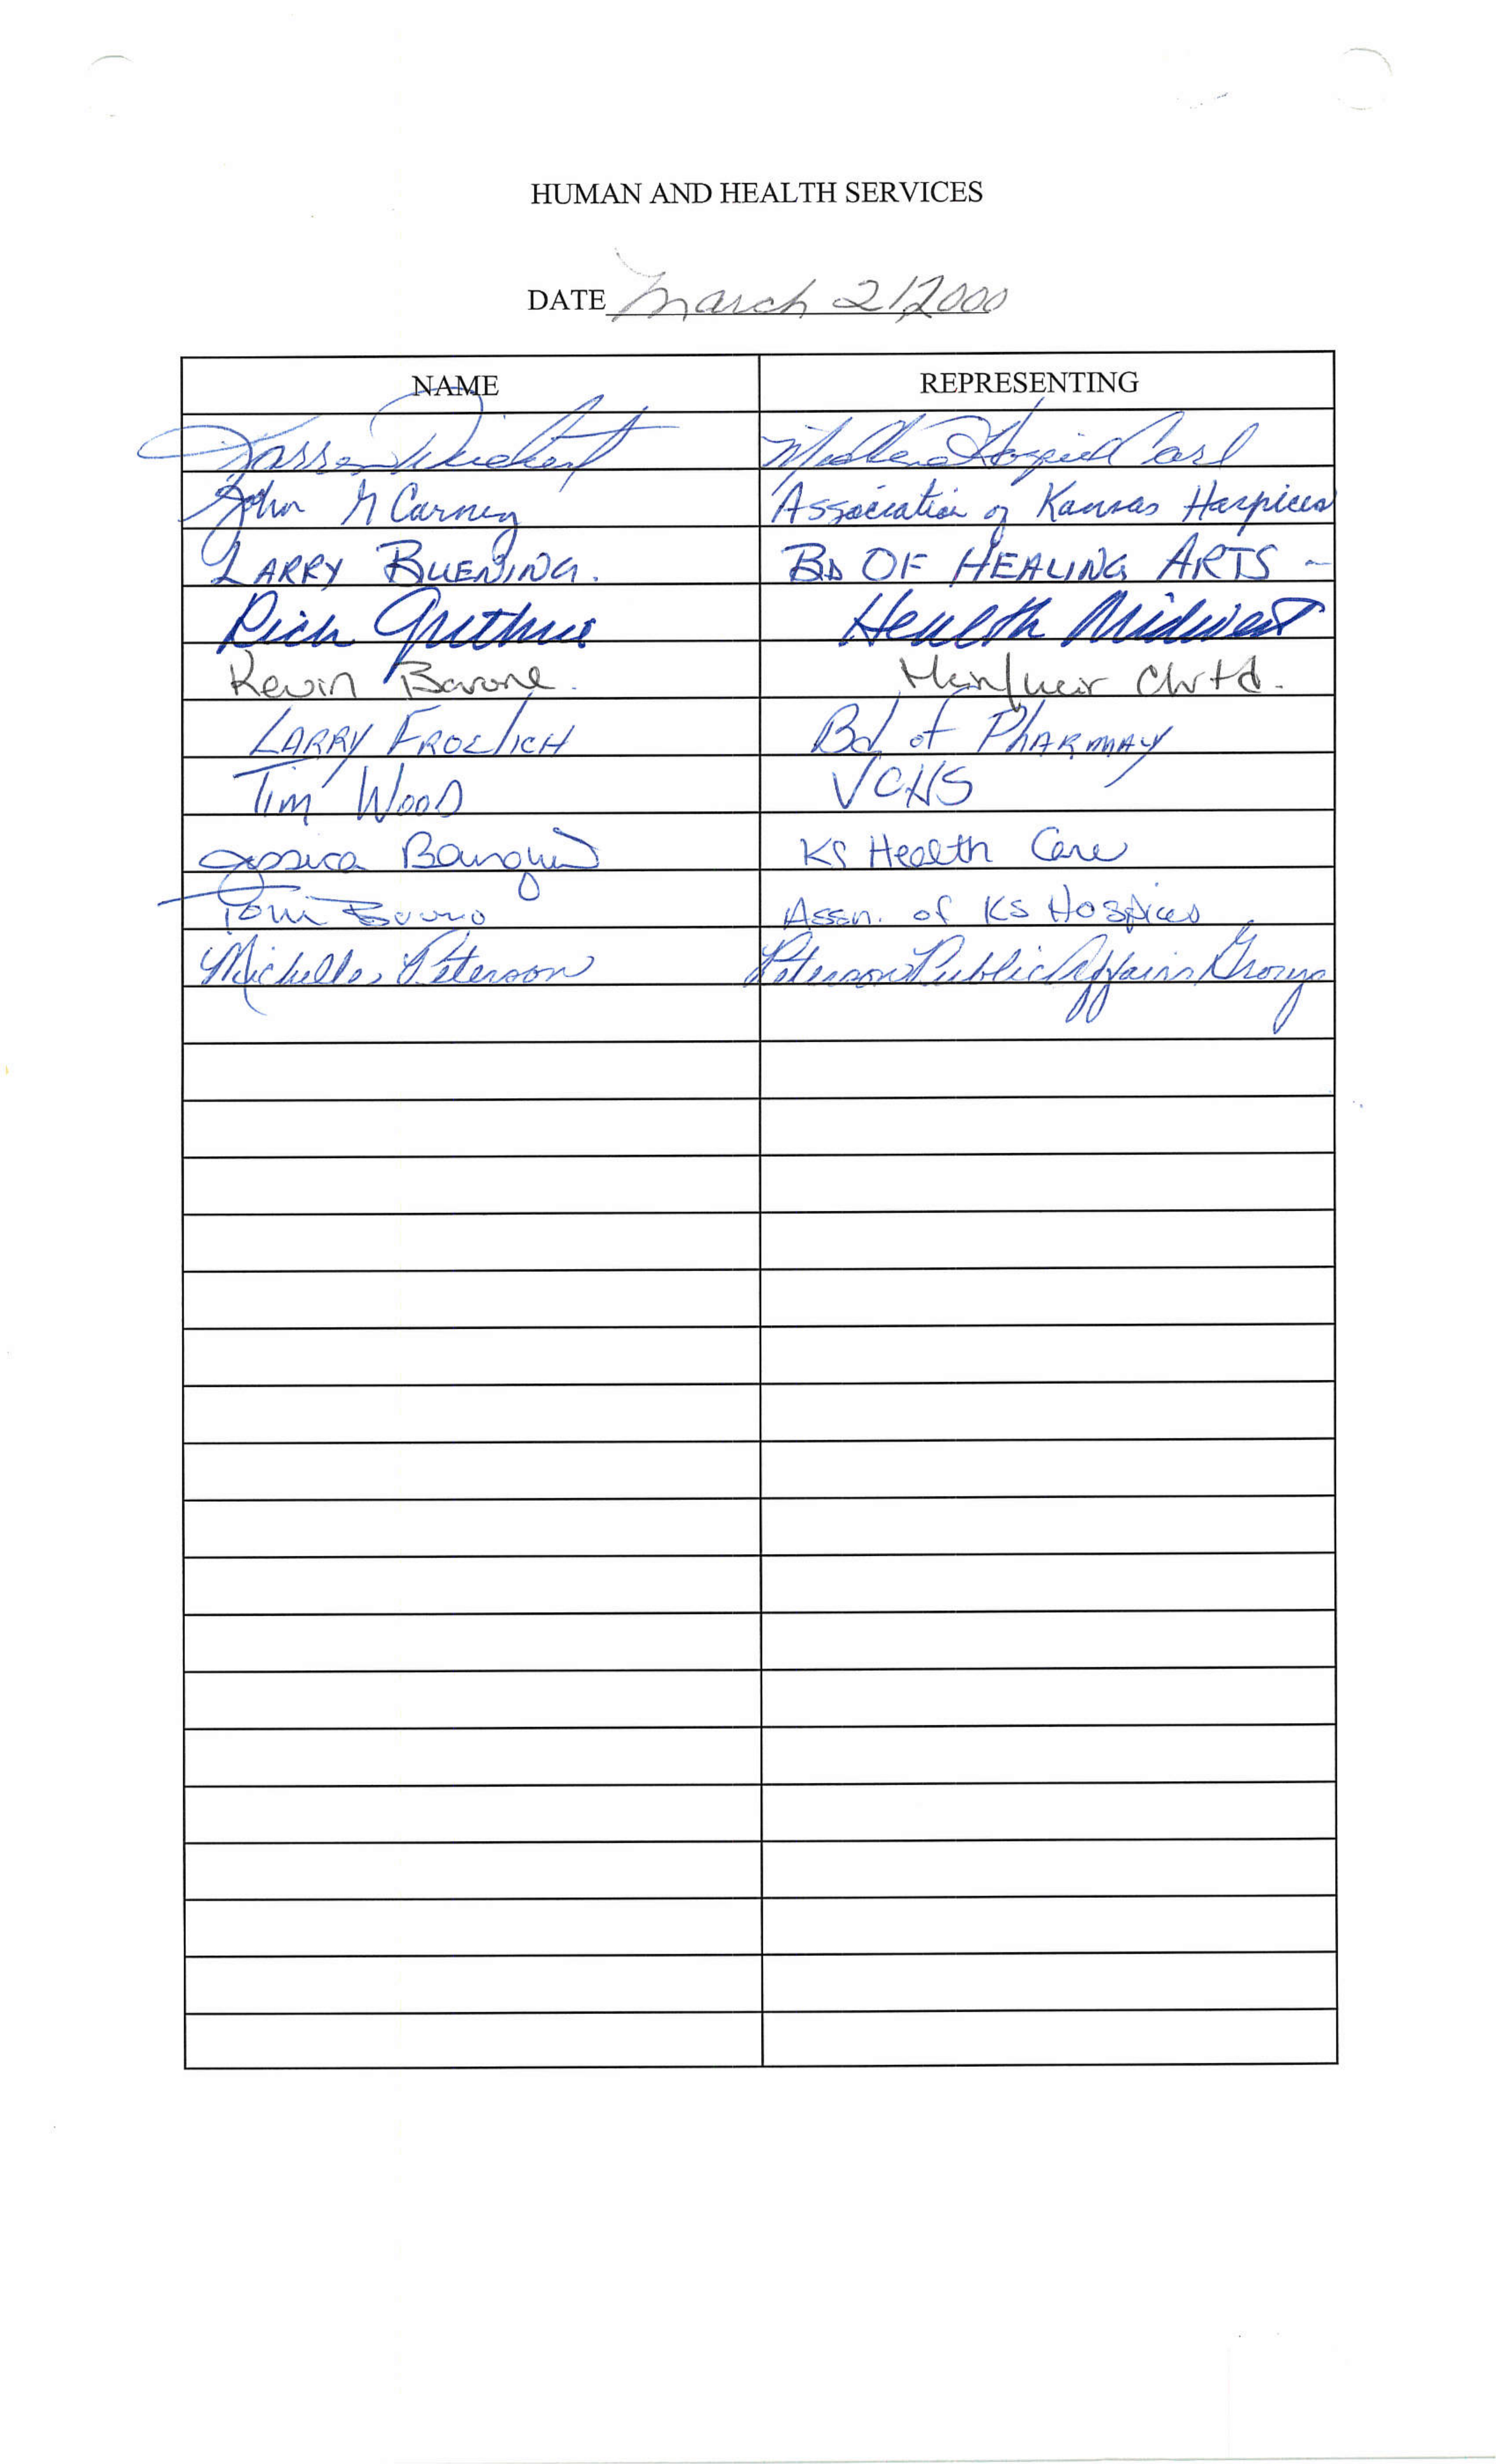 HUMAN AND HEALTH SERVICES
DATE March 21 2000
NAME REPRESENTING
John G Carney Association of Kansas Hospices
LARRY BUENING. BD OF HEALING ARTS -
Rich Guthrie Health Midwest
Kevin Barone Chrtd.
LARRY FROELICH Bd of PHARMACY
Tim WOOD
Jessica KS Health Care
Assn. of KS Hospices
Michelle Peterson Peterson Public Affairs Group